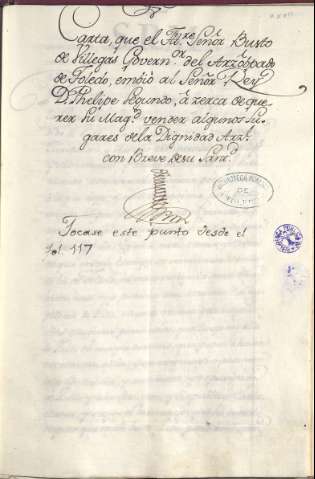 Carta, que el Yll.re Señor Busto
de Villegas Govern.or del Arzobpado
de Toledo, embió al Señor Rey
D. Phelipe Segundo, á zerca de que-
rer su Mag.d vender algunos lu-
gares de la Dignidad Arz.l
con Breve de su Sant.d
BIBLIOTECA PUBLICA
DE
TOLEDO
Tocase este punto desde el
fol. 117